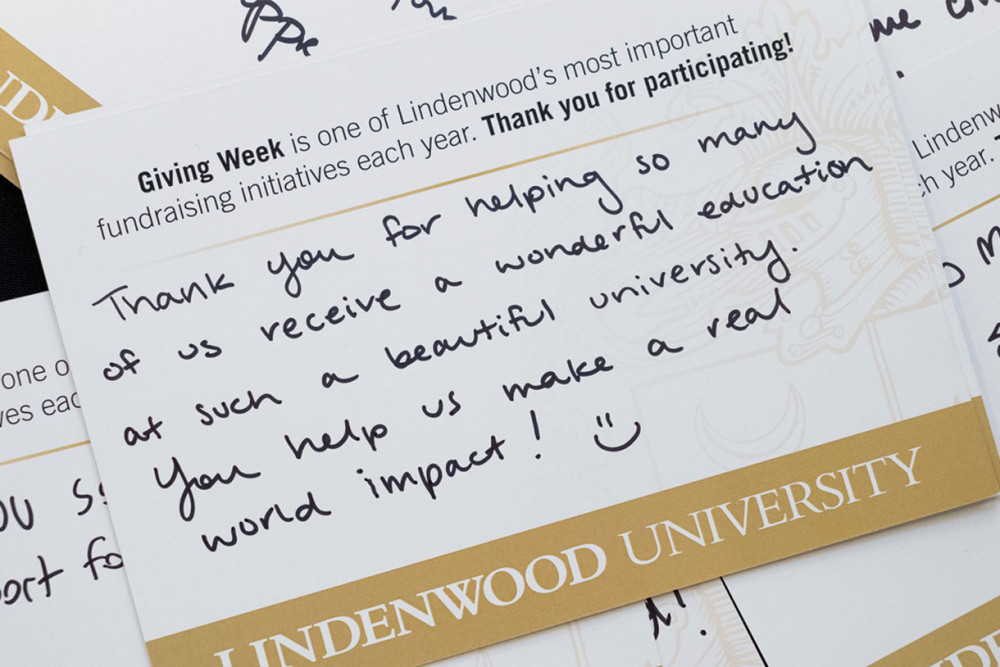 Giving Week is one of Lindenwood's most important
fundraising initiatives each year. Thank you for participating!
Thank you for helping so many
of us receive a wonderful education
at such a beautiful university.
You help us make a real
world impact! :)
LINDENWOOD UNIVERSITY
one o
ves eac
ort fo
Lindenw
h year.